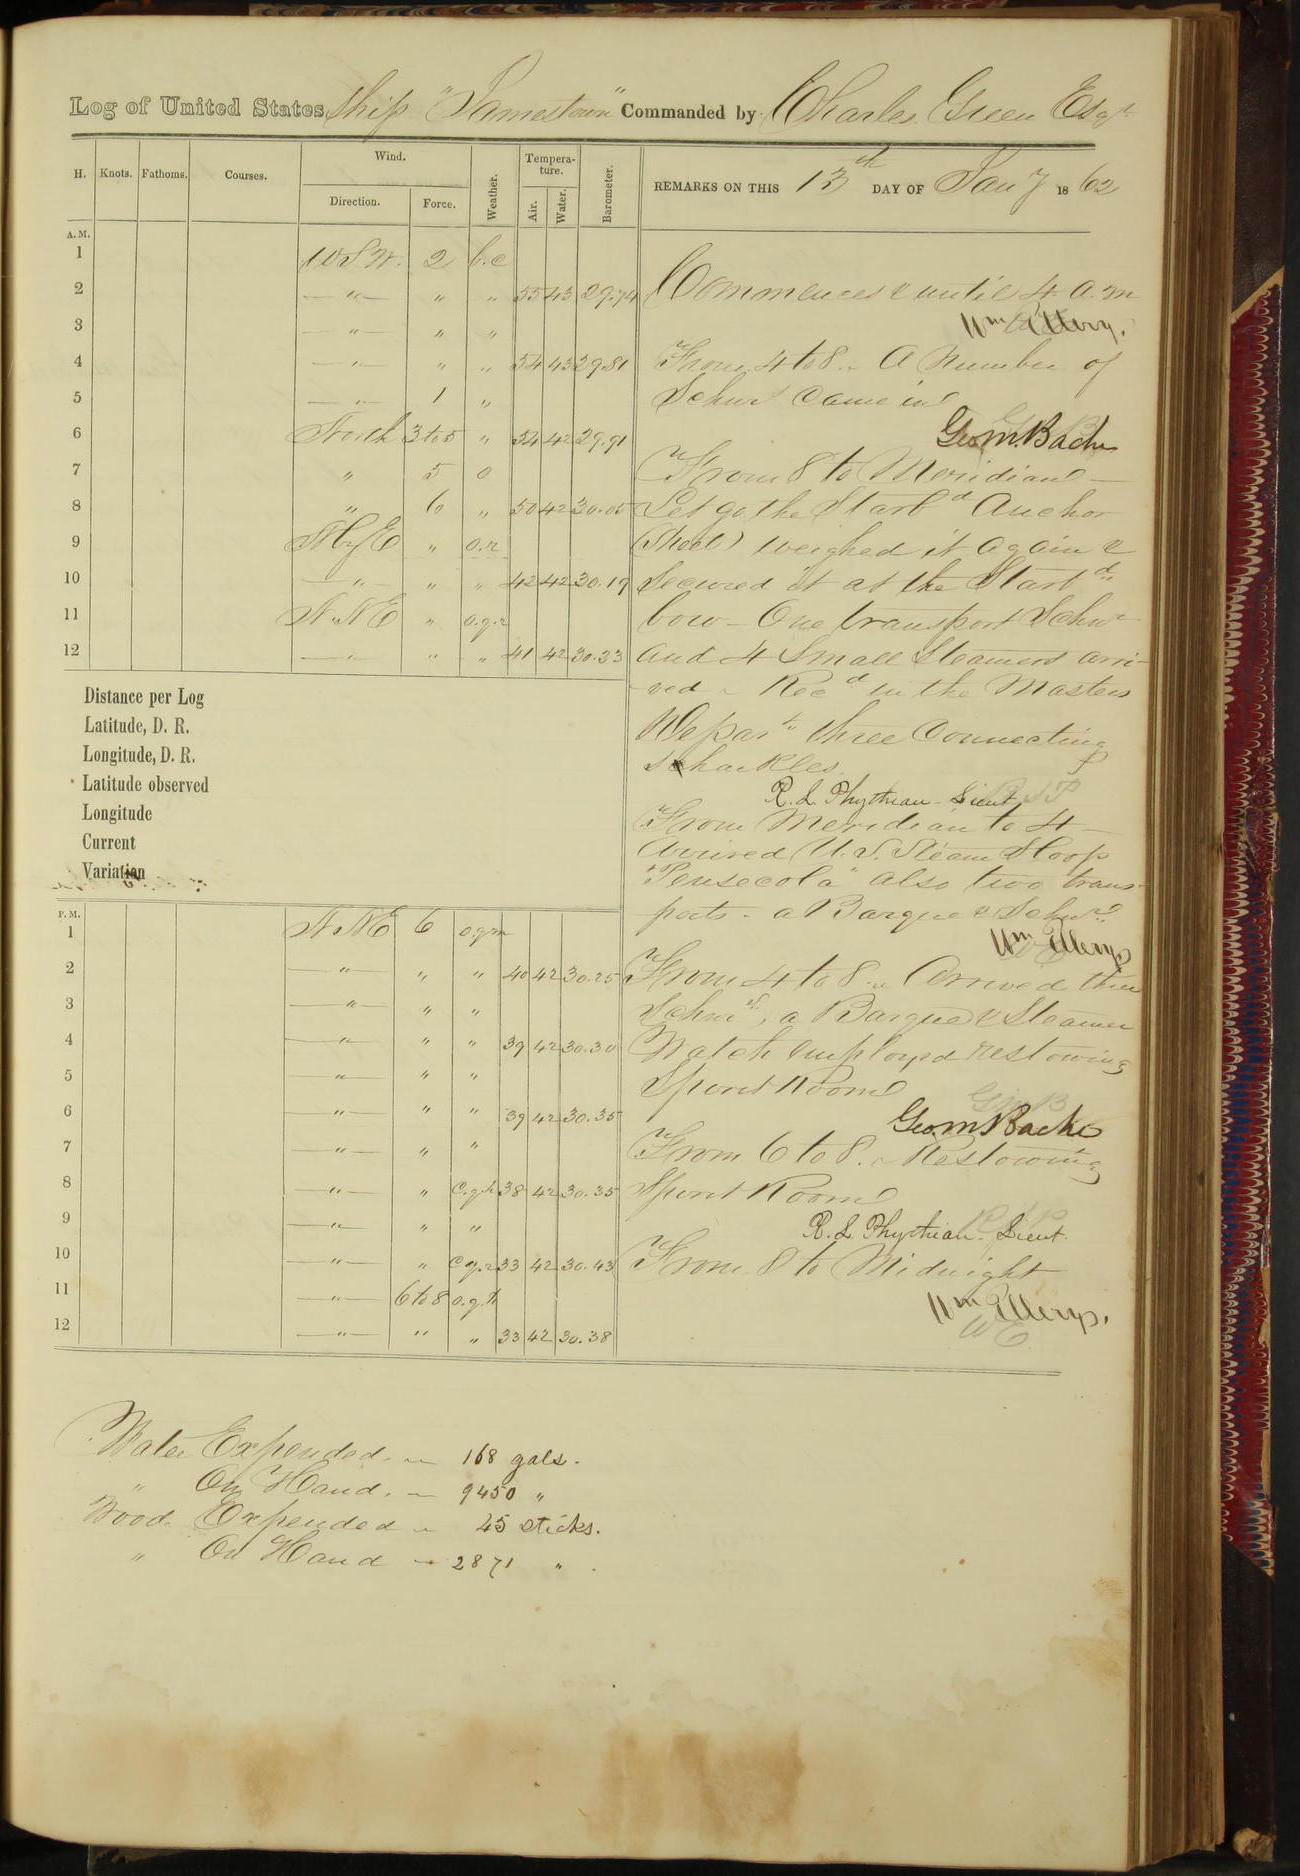 Log of United States Ship "Jamestown" Commanded by Charles Green Esqr
H. Knots. Fathoms. Courses. Wind. Direction. Force. Weather. Temperature. Air. Water. Barometer. REMARKS ON THIS 13th DAY OF Jany 1862
A.M.
1 W.S.W. 2 b.c
2 " " " 55 43 29.74
3 " " "
4 " " " 54 43 29.81
5 " 1 "
6 North 3 to 5 " 54 42 29.91
7 " 5 o
8 " 6 " 50 42 30.05
9 N by E " o.r
10 " " " 42 42 30.19
11 N.N.E " o.g.r
12 " " " 41 42 30.23
Commences & until 4 a.m
Wm Ellery.
From 4 to 8. A Number of
Schrs came in
Geo. M. Bache
From 8 to Meridian
Let go the Starbd Anchor
(Sheet) weighed it again &
Secured it at the Starbd
bow - One transport Schr
and 4 Small Steamers arri-
ved - Recd in the Masters
Depart three Connecting
Shackles
R. L. Phythian - Lieut
From Meridian to 4 -
Arrived U.S. Steam Sloop
"Pensecola" also two trans-
ports - a Barque & Schrs
Wm Ellery
From 4 to 8 Arrived three
Schrs, a Barque & Steamer
Watch employed restowing
Spirit Room
G M B
Geo. M Bache
From 6 to 8. Restowing
Spirit Room
R. L. Phythian. Lieut.
From 8 to Midnight
Wm Ellery.
W E
Distance per Log
Latitude, D. R.
Longitude, D. R.
Latitude observed
Longitude
Current
Variation
P.M.
1 N.N.E 6 o.g.m
2 " " " 40 42 30.25
3 " " "
4 " " " 39 42 30.30
5 " " "
6 " " " 39 42 30.35
7 " " "
8 " " c.g.h 38 42 30.35
9 " " "
10 " " c.g.r 33 42 30.43
11 " 6 to 8 o.g.h
12 " " " 33 42 30.38
Water Expended. 168 gals.
" On Hand. 9450 "
Wood. Expended 25 sticks.
" On Hand 2871 "